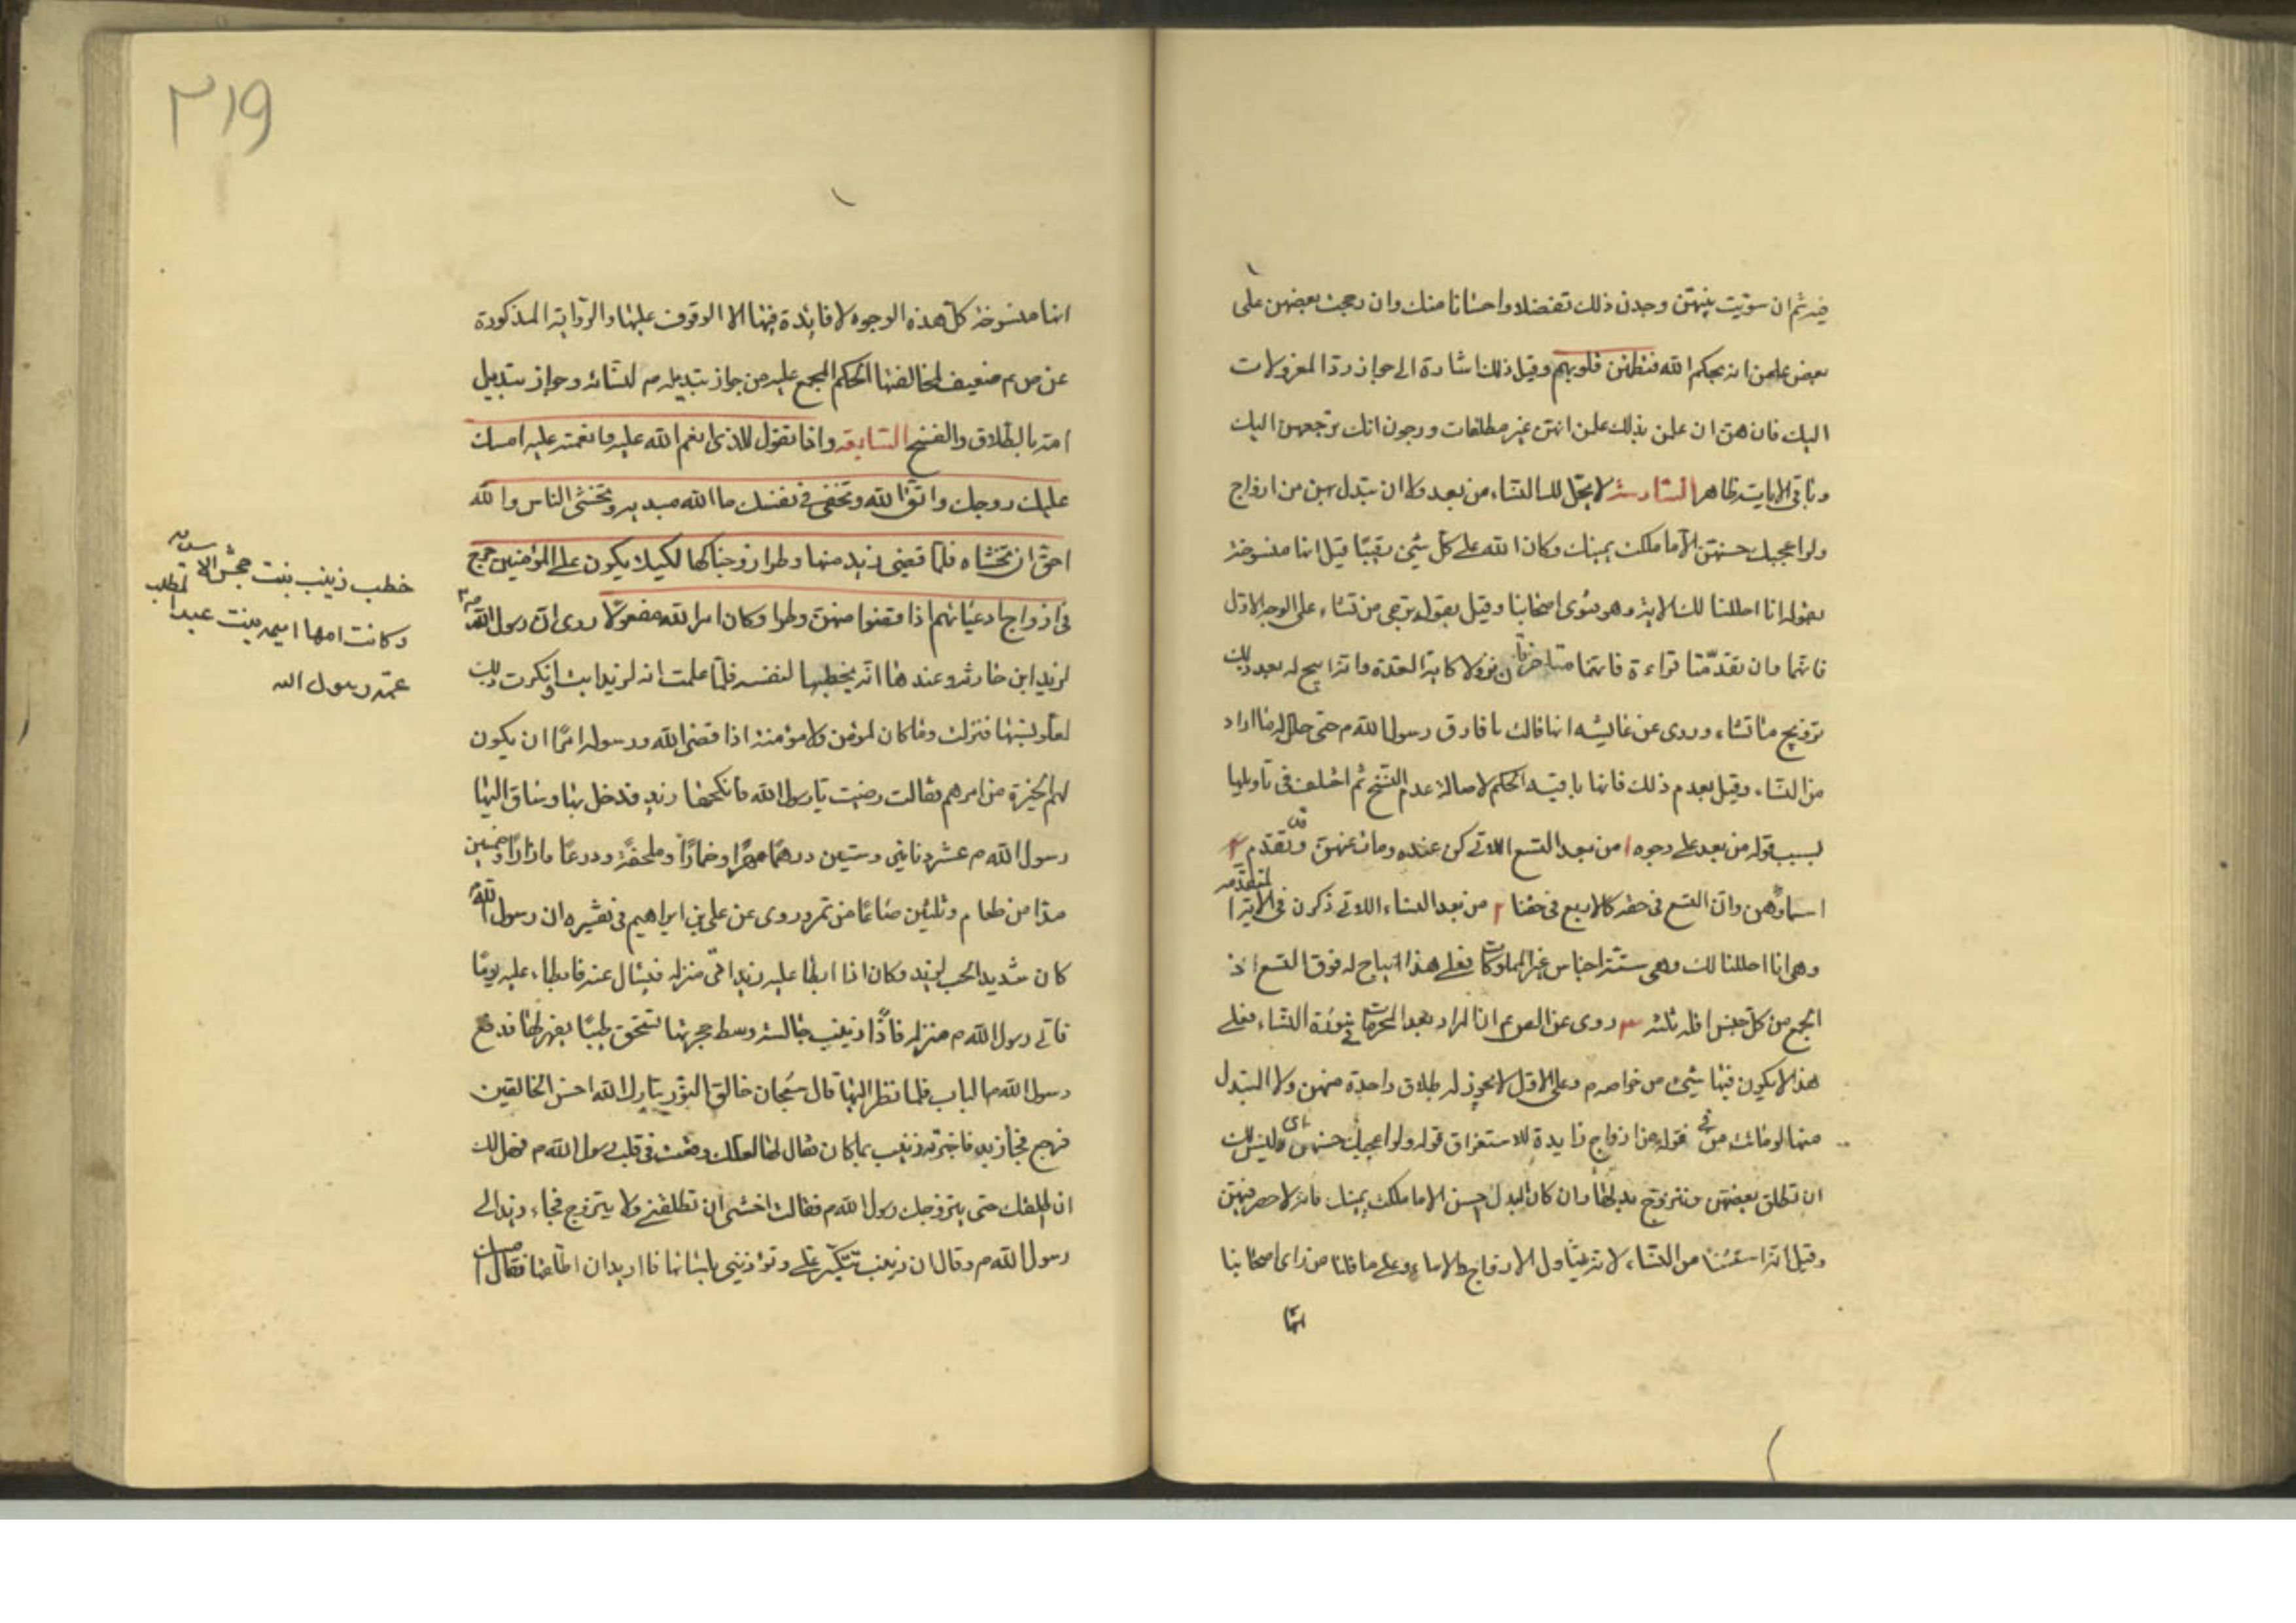 فيه ثم ان سويت بينهن وجدن ذلك تفضلا واحسانا منك وان رجحت بعضهن على
بعض علمن انه بحكم الله فتطمئن قلوبهم وقيل ذلك اشارة الى جواز ردّ المعزولات
اليك فان هن ان علمن بذلك علمن انهن غير مطلقات ورجون انك ترجعهن اليك
وباقى الايات ظاهر السادسة لا يحل لك النساء من بعد ولا ان تبدل بهن من ازواج
ولو اعجبك حسنهن الا ما ملكت يمينك وكان الله على كل شئ رقيبا قيل انها منسوخة
بقوله انا احللنا لك الاية وهو فتوى اصحابنا وقيل بقوله ترجى من تشاء على الوجه الاول
فانها وان تقدمتا قراءة فانهما متاخرتان نزولا كاية العدة وانه ابيح له بعد ذلك
تزويج ما تشاء وروى عن عايشه انها قالت ما فارق رسول الله م حتى حلل له ما اراد
من النساء وقيل بعدم ذلك فانها باقية الحكم لاصالة عدم النسخ ثم اختلف فى تاويلها
بسبب قوله من بعد على وجوه ا من بعد التسع اللاتى كن عنده ومات عنهن وقد تقدم
اسماؤهن وان التسع فى حقه كالاربع فى حقنا ٢ من بعد النساء اللاتى ذكرن فى الاية المتقدمه
وهى انا احللنا لك وهى ستة اجناس غير المملوكات فعلى هذا انه يباح له فوق التسع اذ
الجمع من كل جنس اقله ثلثه ٣ روى عن الص ع ان المراد بعد المحرمات فى سورة النساء فعلى
هذا لا يكون فيها شئ من خواصه م وعلى الاول لا يجوز له طلاق واحدة منهن ولا التبدل
منها لو ماتت من فى قوله من ازواج زايدة للاستغراق قوله ولو اعجبك حسنهن اى وليس لك
ان تطلق بعضهن وتتزوج بدلها وان كان البدل حسن الا ما ملكت يمينك فانه لا حصر فيهن
وقيل انه استثنا من النساء لانه يتناول الازواج والاماء وعلى ما قلنا من راى اصحابنا
انها
٣١٩
انها منسوخة كل هذه الوجوه لا فائدة فيها الا الوقوف عليها والرواية المذكورة
عن ص ع ضعيف لمخالفتها الحكم المجمع عليه من جواز تبديله م لنسائه وجواز تبديل
امته بالطلاق والفسخ السابعة واذا تقول للذى انعم الله عليه وانعمت عليه امسك
عليك زوجك واتق الله وتخفى فى نفسك ما الله مبديه وتخشى الناس والله
احق ان تخشاه فلما قضى زيد منها وطرا زوجناكها لكيلا يكون على المؤمنين حرج
فى ازواج ادعيائهم اذا قضوا منهن وطرا وكان امر الله مفعولا روى ان رسول الله ص
لزيد ابن حارثه وعندها انه يخطبها لنفسه فلما علمت انه لزيد ابت وانكرت ذلك
فنزلت وما كان لمؤمن ولا مؤمنة اذا قضى الله ورسوله امرا ان يكون
لهم الخيرة من امرهم فقالت رضيت يا رسول الله فانكحها زيد فدخل بها وساق اليها
رسول الله م عشر دنانير وستين درهما مهرا وخمارا وملحفة ودرعا وازارا وخمسين
مدا من طعام وثلثين صاعا من تمر وروى عن على بن ابراهيم فى تفسيره ان رسول الله ص
كان شديد الحب لزيد وكان اذا ابطا عليه زيد اتى منزله فيسال عنه فابطاء عليه يوما
فاتى رسول الله م منزله فاذا زينب جالسة وسط حجرتها تسحق طيبا بفهر لها فدفع
رسول الله م الباب فلما نظر اليها قال سبحان خالق النور تبارك الله احسن الخالقين
فرجع فجا زيد فاخبرته زينب بما كان فقال لها لعلك وقعت فى قلب رسول الله م فهل لك
ان اطلقك حتى يتزوجك رسول الله م فقالت اخشى ان تطلقنى ولا يتزوج فجاء زيد الى
رسول الله م وقال ان زينب تتكبر على وتؤذينى بلسانها فانا اريد ان اطلقها فقال امسك
خطب زينب بنت جحش الاسديه
وكانت امها اميمه بنت عبد المطلب
عمة رسول الله